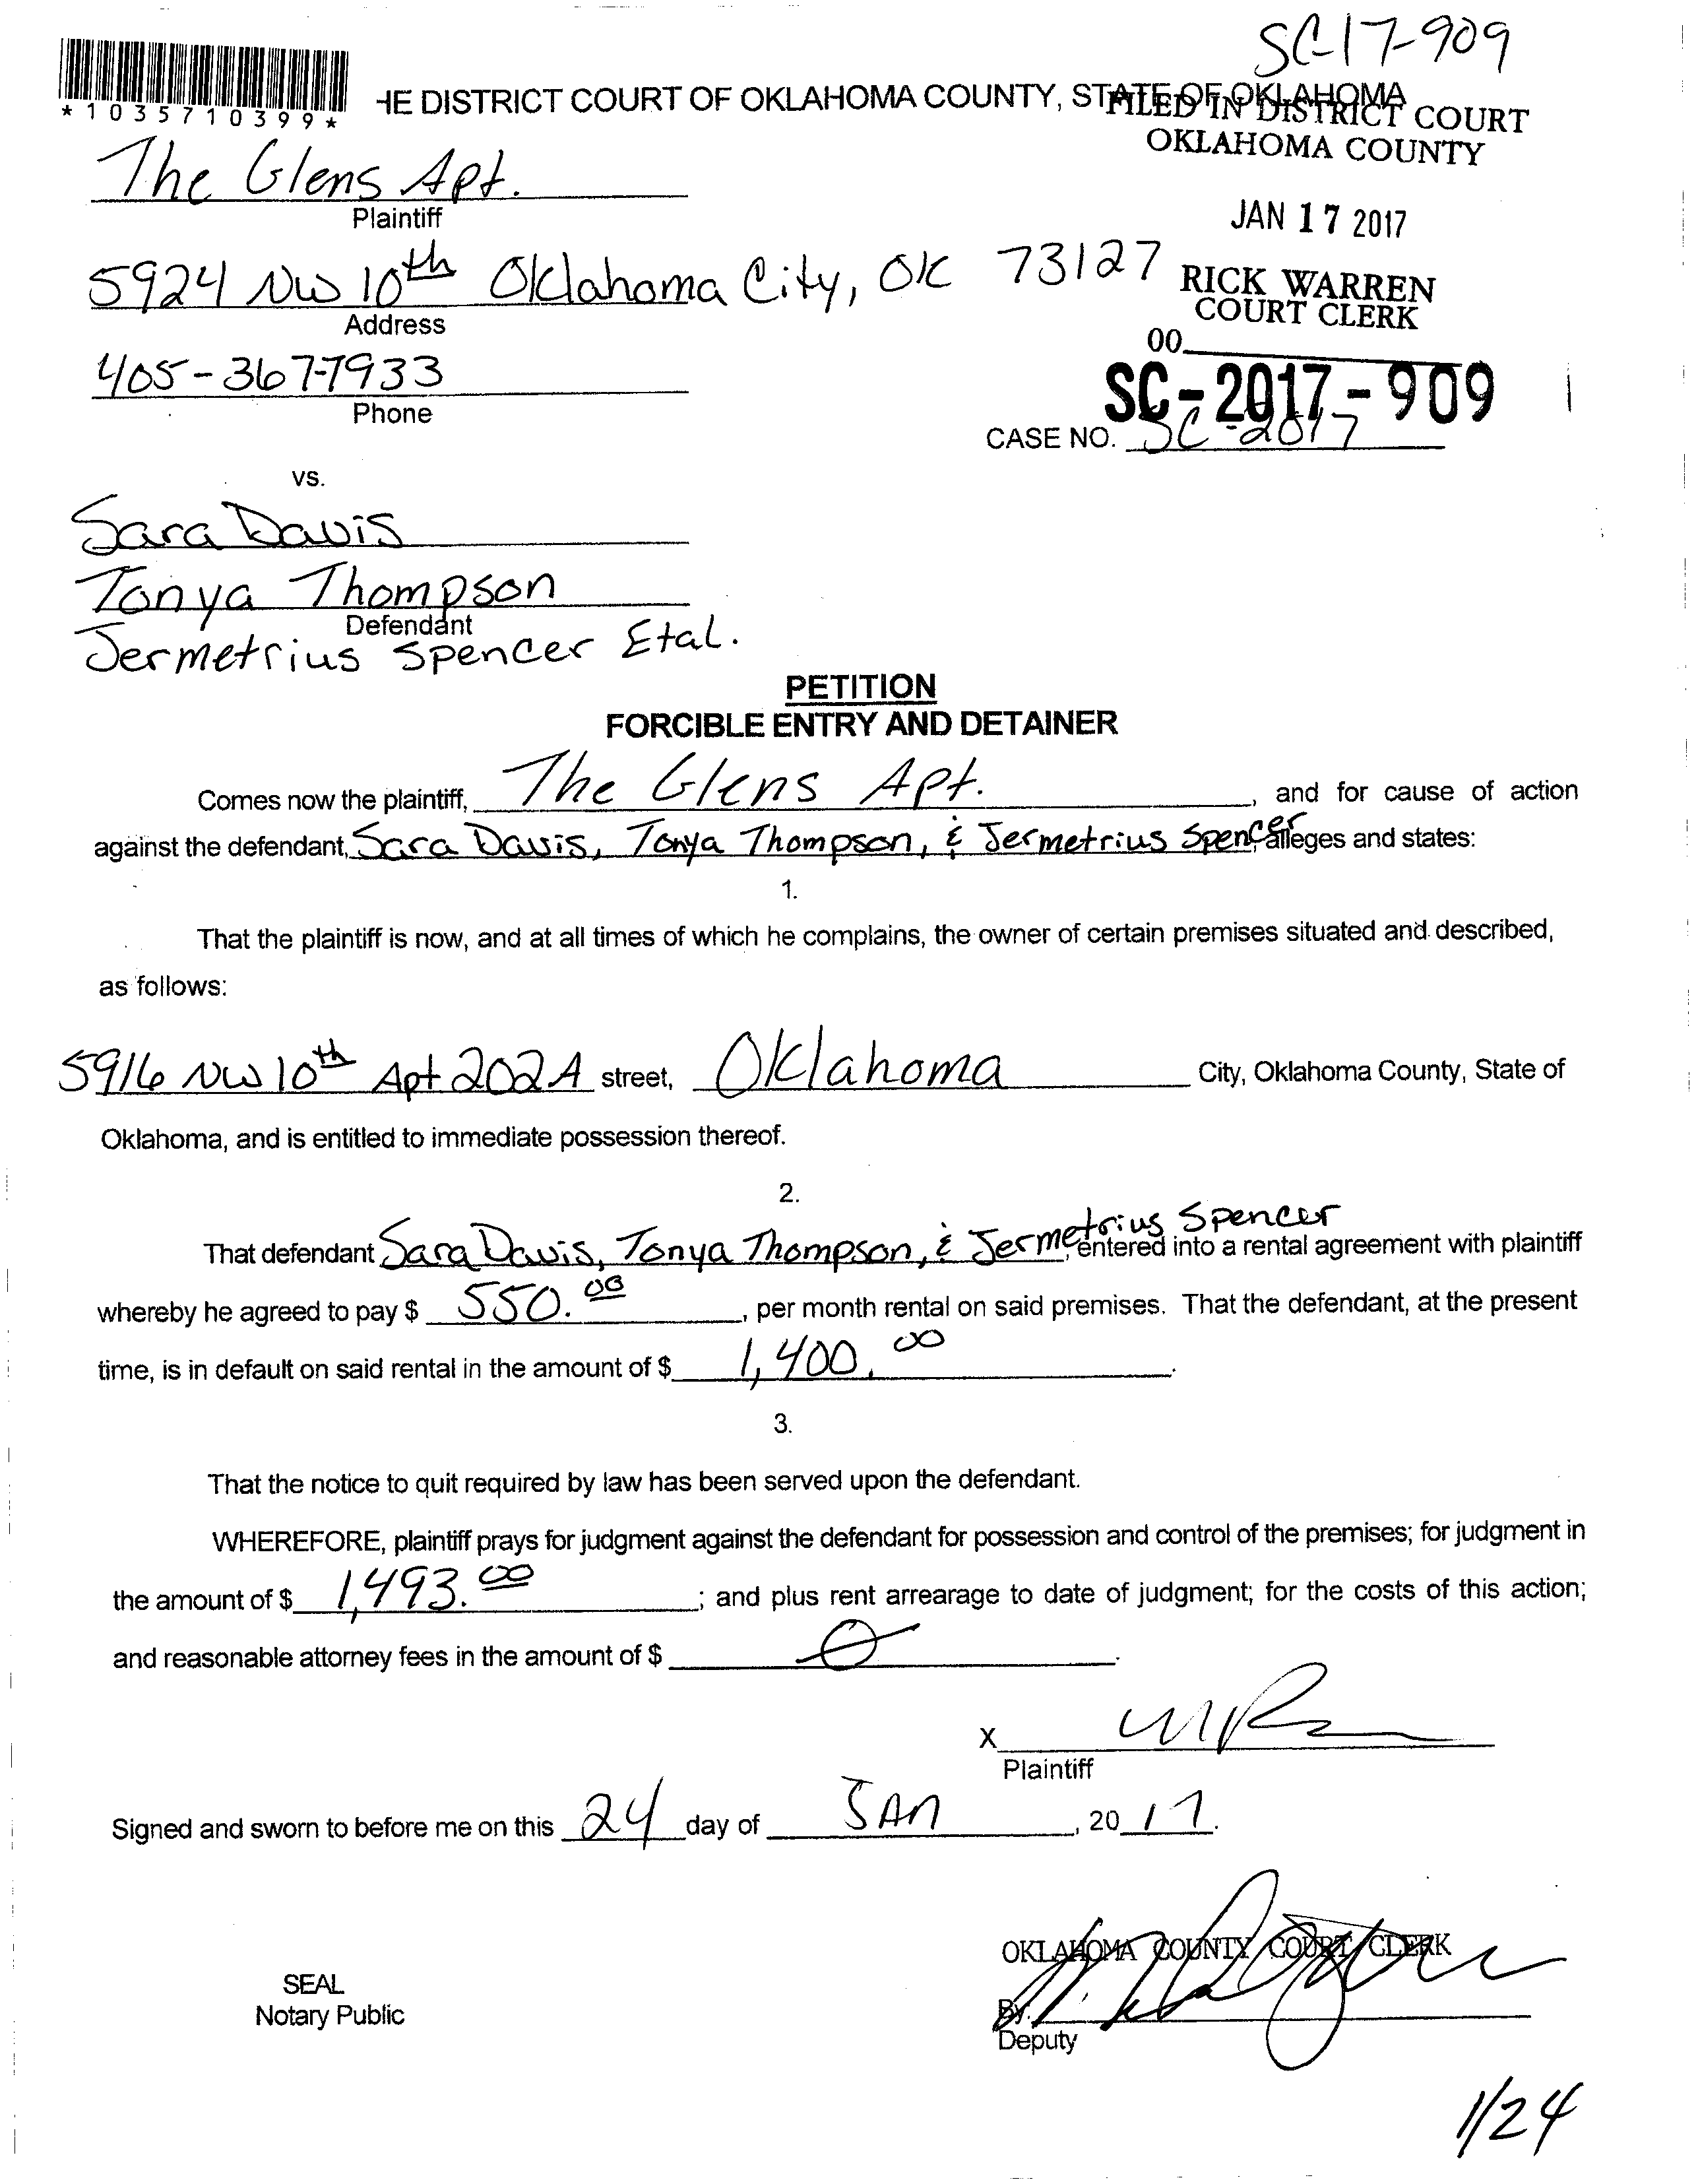 SC-17-909
*1035710399*
HE DISTRICT COURT OF OKLAHOMA COUNTY, STATE OF OKLAHOMA
FILED IN DISTRICT COURT
OKLAHOMA COUNTY
The Glens Apt.
Plaintiff
JAN 17 2017
5924 NW 10th Oklahoma City, OK 73127
Address
RICK WARREN
COURT CLERK
00
405-367-7933
Phone
SC-2017-909
CASE NO. SC-2017
vs.
Sara Davis
Tonya Thompson
Defendant
Jermetrius Spencer Etal.
PETITION
FORCIBLE ENTRY AND DETAINER
Comes now the plaintiff, The Glens Apt., and for cause of action
against the defendant, Sara Davis, Tonya Thompson, & Jermetrius Spencer alleges and states:
1.
That the plaintiff is now, and at all times of which he complains, the owner of certain premises situated and described,
as follows:
5916 NW 10th Apt 202A street, Oklahoma City, Oklahoma County, State of
Oklahoma, and is entitled to immediate possession thereof.
2.
That defendant Sara Davis, Tonya Thompson, & Jermetrius Spencer, entered into a rental agreement with plaintiff
whereby he agreed to pay $ 550.00, per month rental on said premises. That the defendant, at the present
time, is in default on said rental in the amount of $ 1,400.00.
3.
That the notice to quit required by law has been served upon the defendant.
WHEREFORE, plaintiff prays for judgment against the defendant for possession and control of the premises; for judgment in
the amount of $ 1,493.00; and plus rent arrearage to date of judgment; for the costs of this action;
and reasonable attorney fees in the amount of $ 0.
X
Plaintiff
Signed and sworn to before me on this 24 day of JAN, 2017.
OKLAHOMA COUNTY COURT CLERK
SEAL
Notary Public
By.
Deputy
1/24